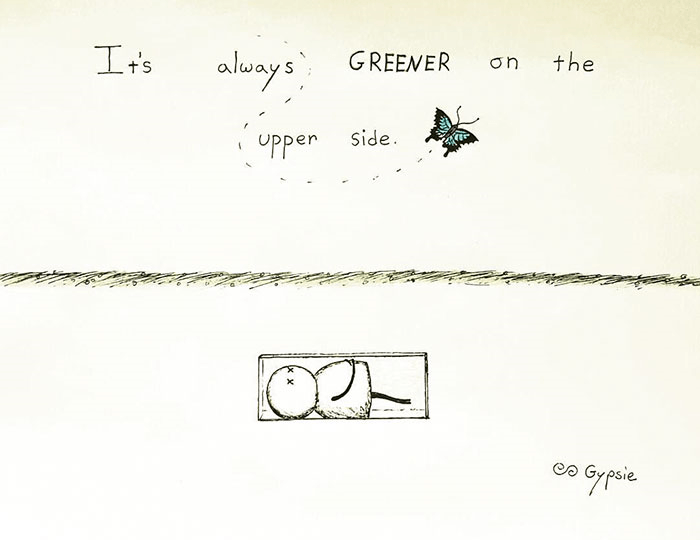 It's always GREENER on the
upper side.
Gypsie